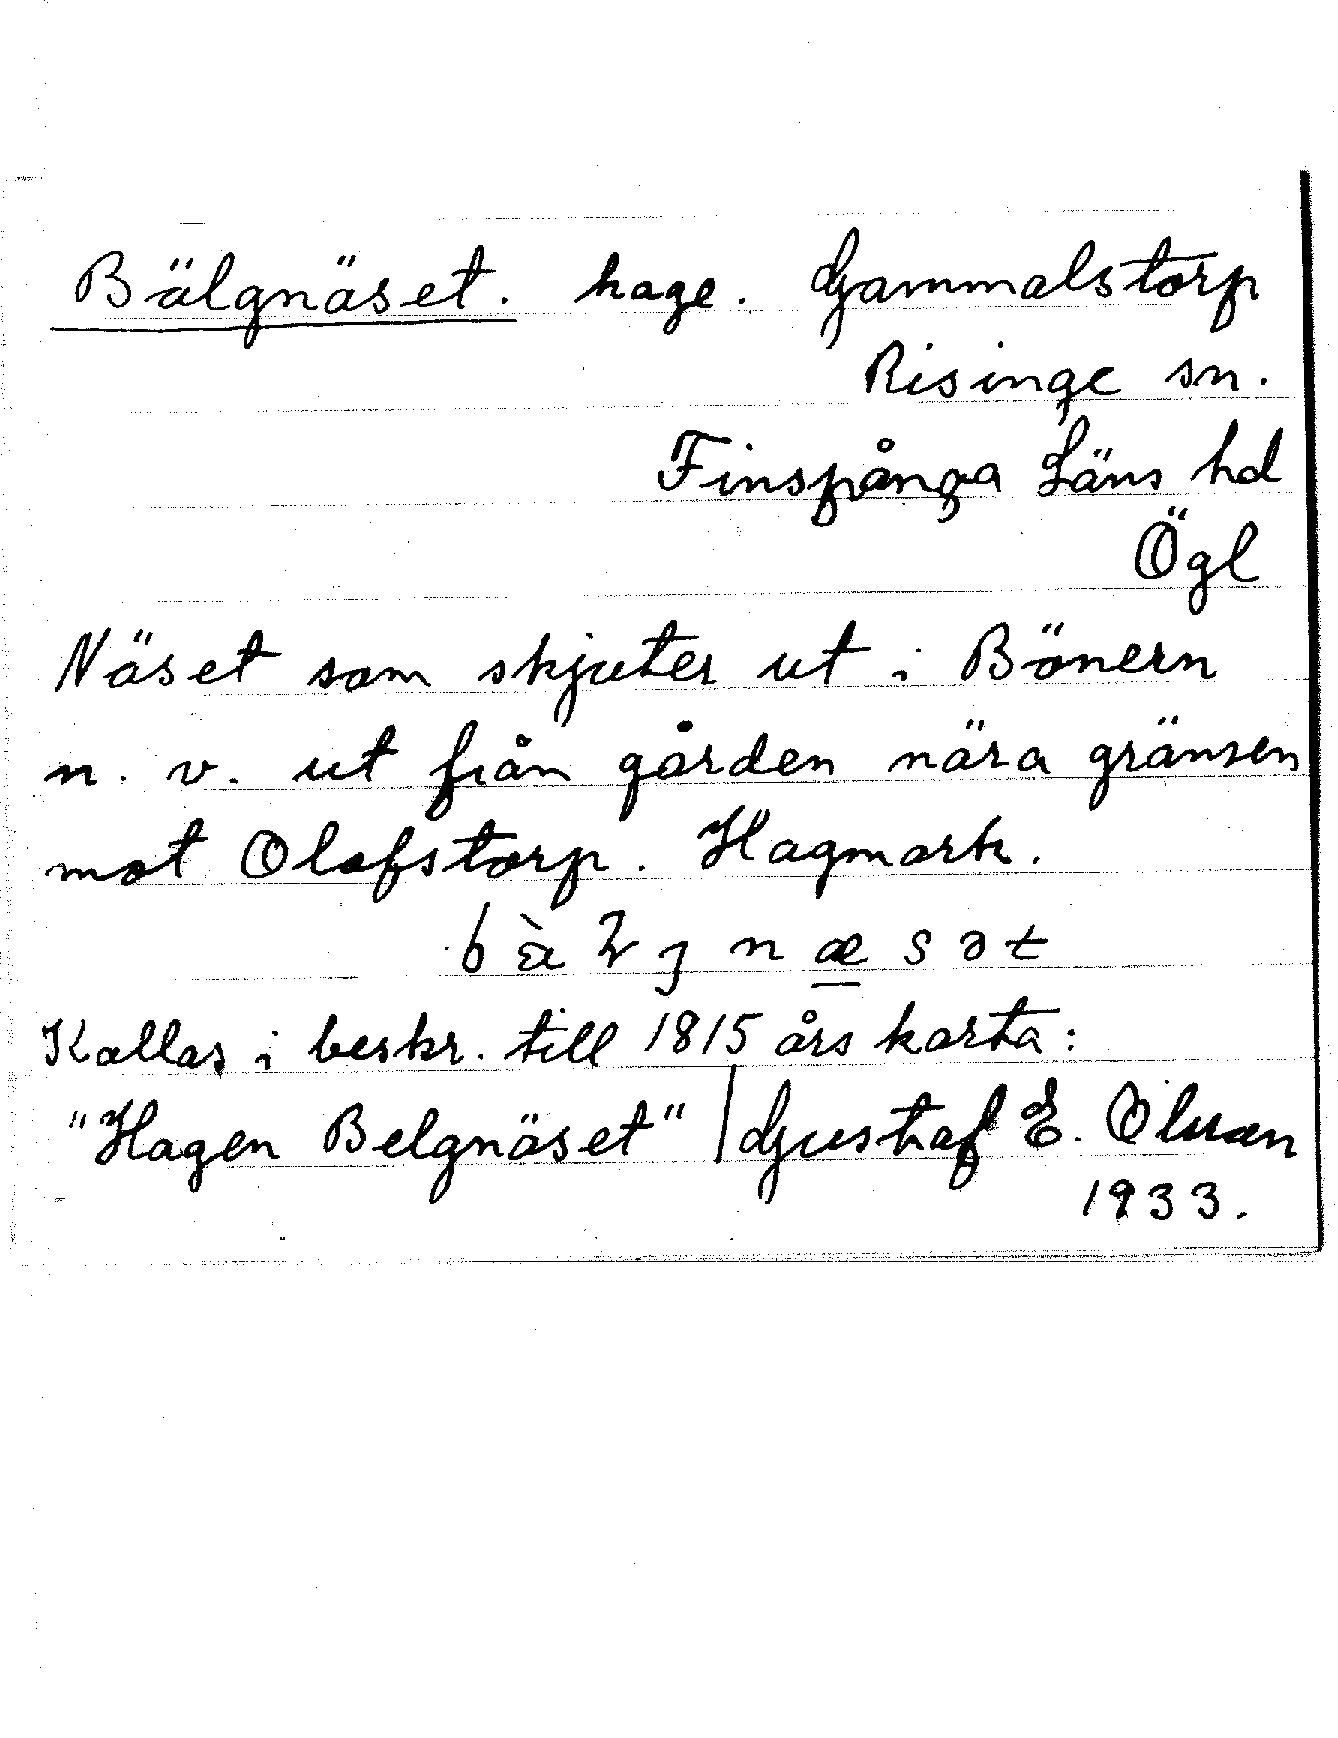 Bälgnäset. hage. Gammalstorp
Risinge sn.
Finspånga Läns hd
Ögl
Näset som skjuter ut i Bönern
n. v. ut från gården nära gränsen
mot Olofstorp. Hagmark.
Kallas i beskr. till 1815 års karta:
"Hagen Belgnäset" / Gustaf E. Olsson
1933.